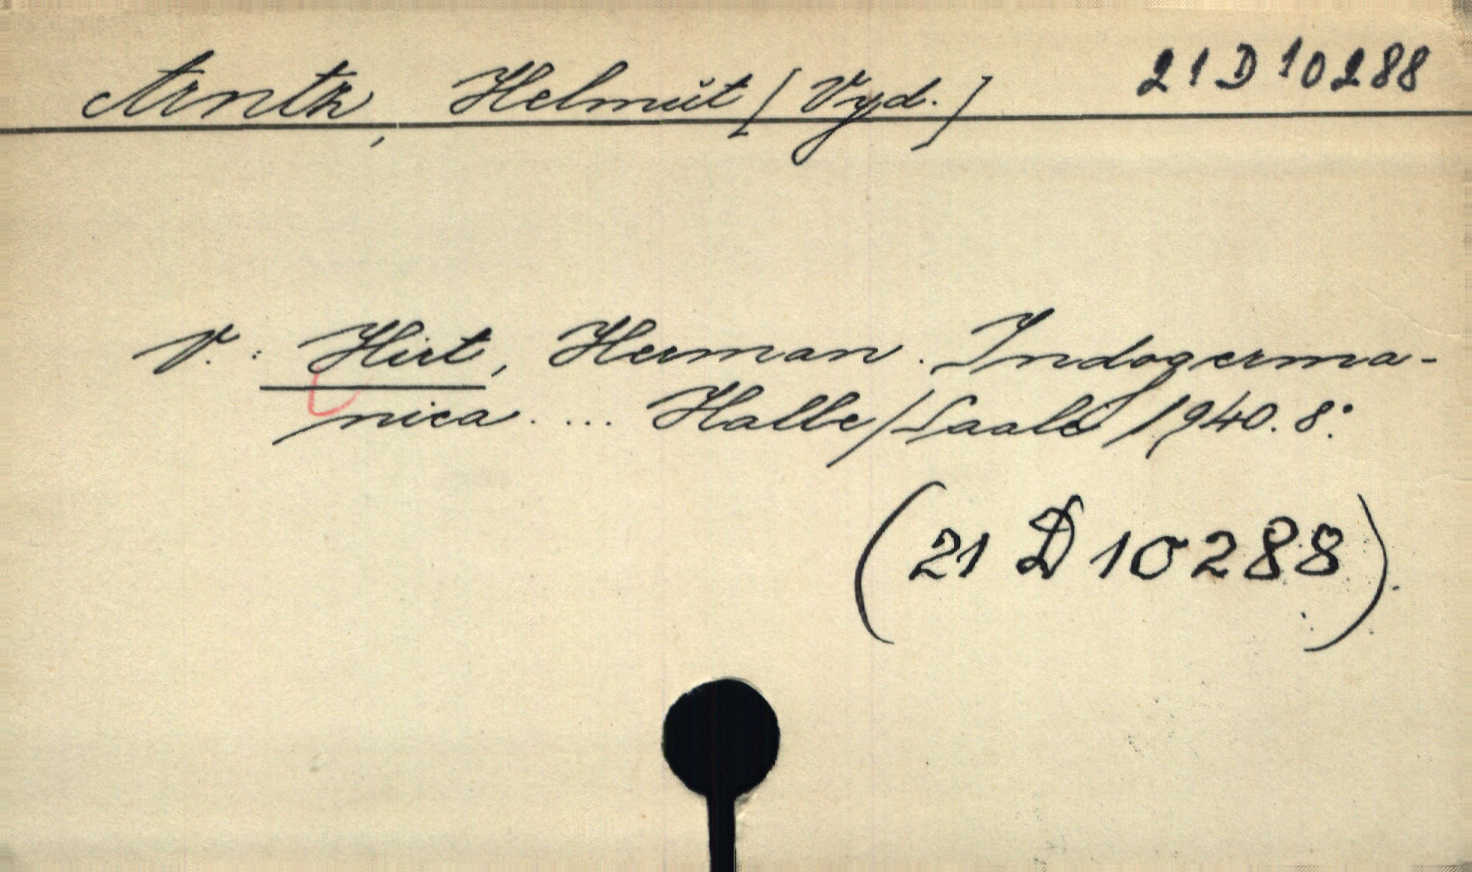 Arntz, Helmut [Vyd.] 21 D 10288
V.: Hirt, Herman. Indogerma-
nica.... Halle/Saale 1940. 8°.
(21 D 10288)